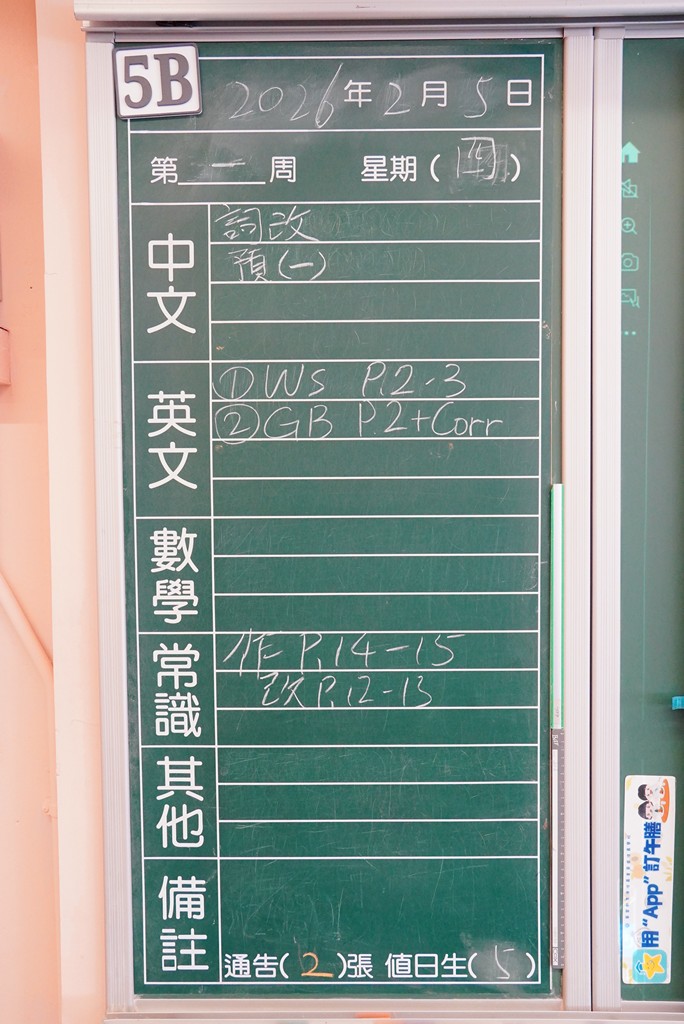 5B
2026年2月5日
第一周 星期(四)
中文
詞改
預(一)
英文
①WS P.2-3
②GB P.2+Corr
數學
常識
作P.14-15
改P.12-13
其他
備註
通告(2)張 值日生(5)
用“App”訂午膳